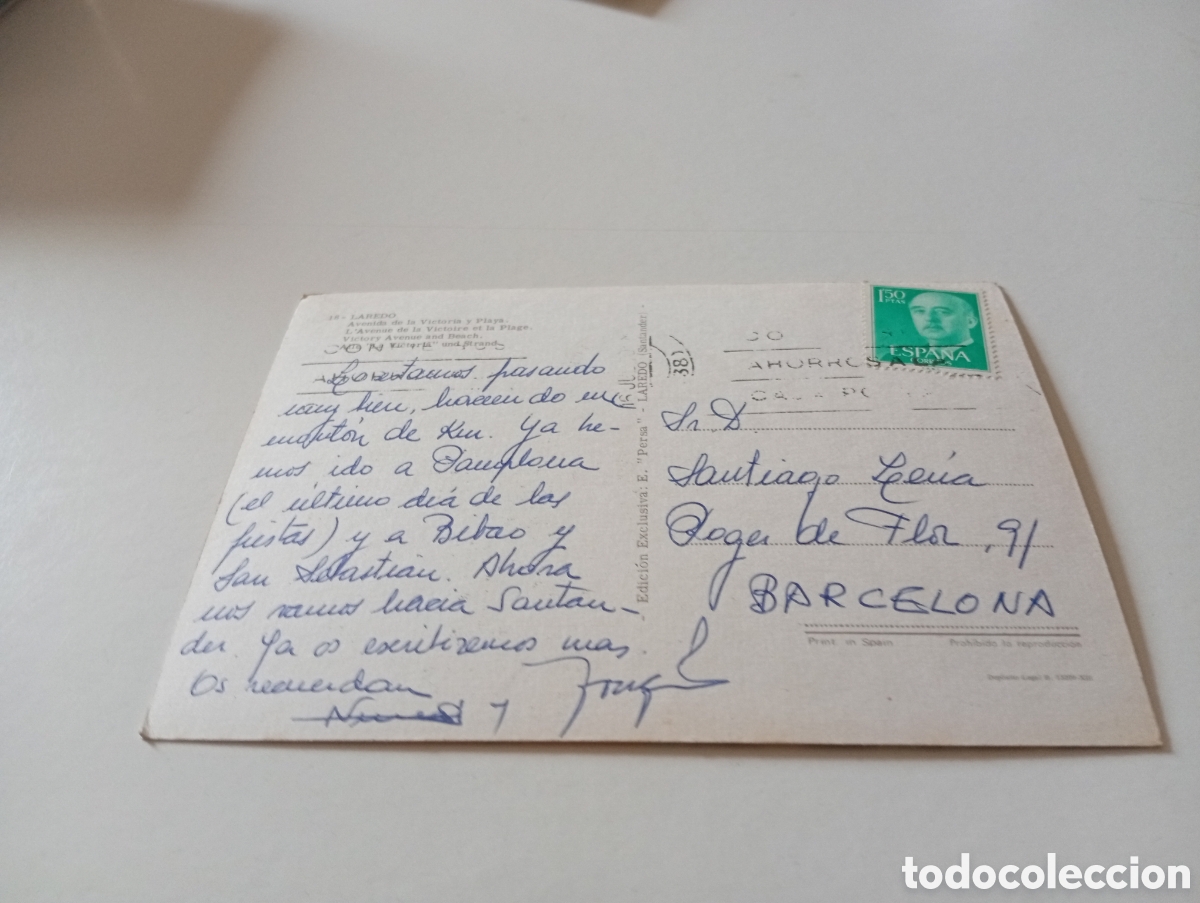 LAREDO
Avenida de la Victoria y Playa.
L'Avenue de la Victoire et la Plage.
Victory Avenue and Beach.
Victoria" und Strand.
Lo estamos pasando
muy bien, haciendo un
montón de Km. Ya he-
mos ido a Pamplona
(el último día de las
fiestas) y a Bibao y
San Sebastian. Ahora
nos vamos hacia Santan-
der. Ya os escribiremos mas.
Os recuerdan
y
Edición Exclusiva: E. "Persa" - LAREDO (Santander)
1'50 PTAS
ESPAÑA
AHORROS
Sr. D.
Santiago
Roger de Flor, 91
BARCELONA
Print. in Spain
Prohibida la reproducción
Depósito Legal B.
todocoleccion